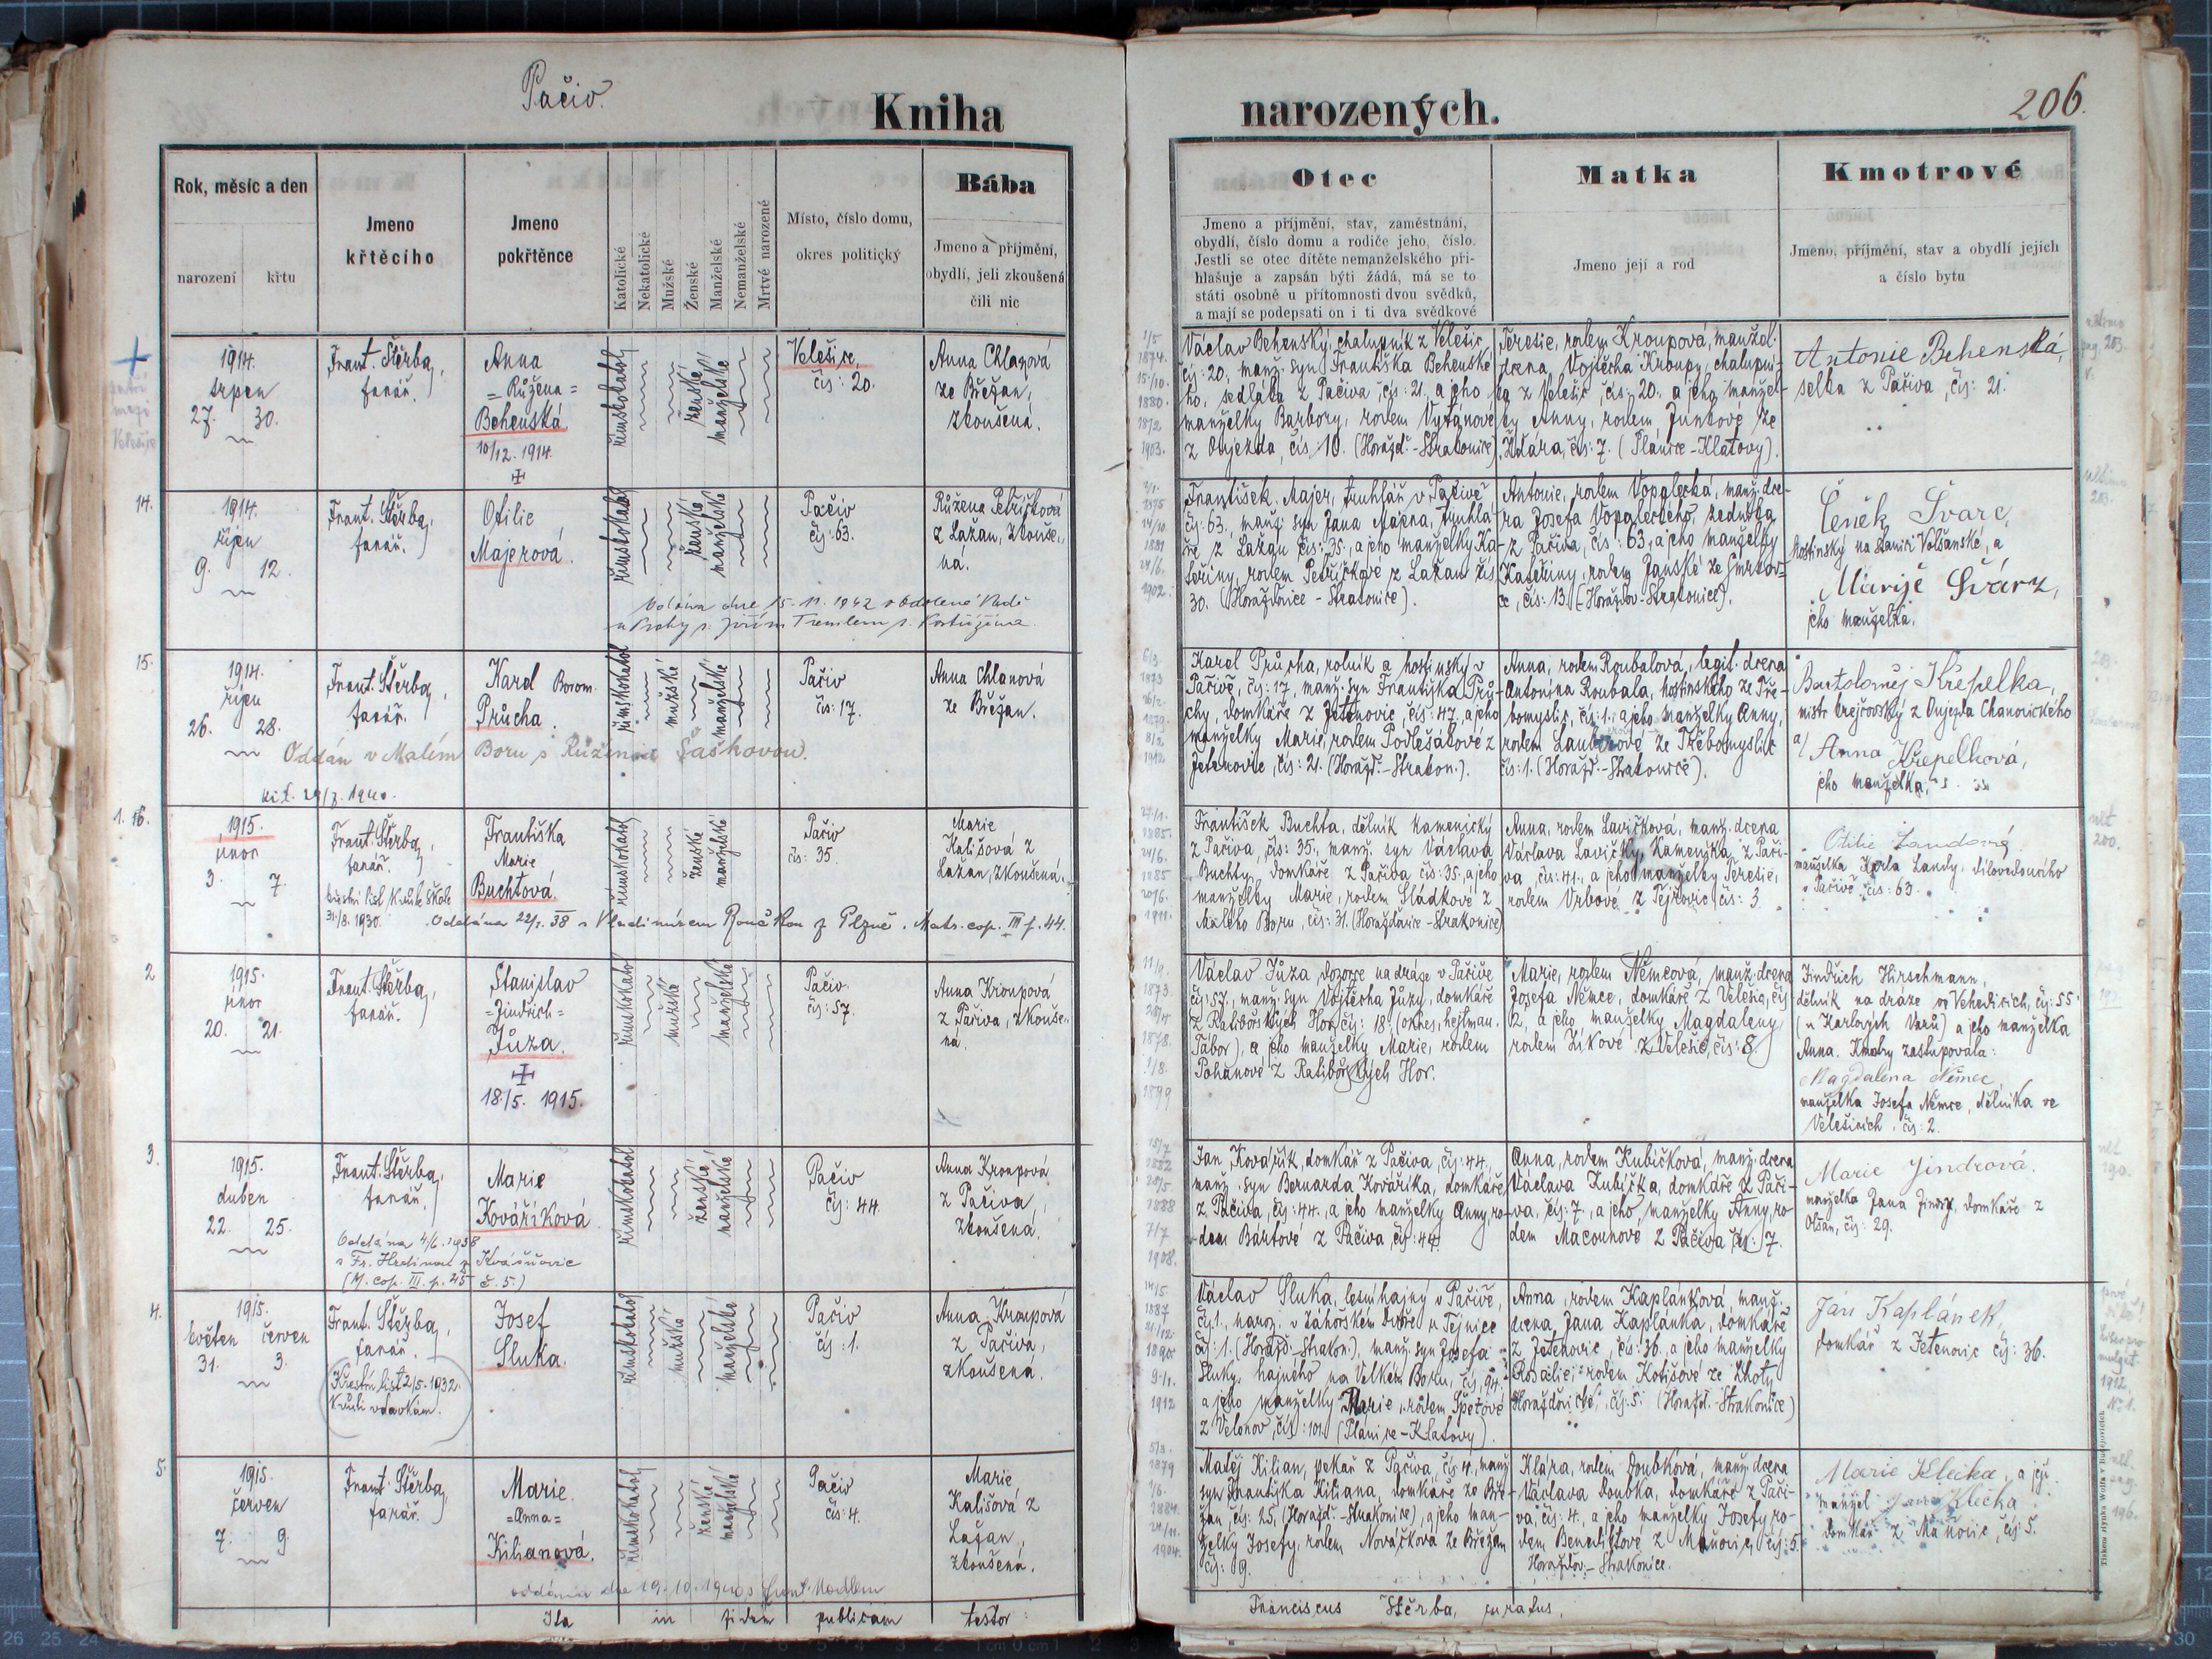 Pačiv.
Kniha
narozených.
206.
Rok, měsíc a den
narození
křtu
Jmeno
křtěcího
Jmeno
pokřtěnce
Katolické
Nekatolické
Mužské
Ženské
Manželské
Nemanželské
Mrtvé narozené
Místo, číslo domu,
okres politický
Bába
Jmeno a příjmění,
obydlí, jeli zkoušená
čili nic
Otec
Jmeno a příjmění, stav, zaměstnání,
obydlí, číslo domu a rodiče jeho, číslo.
Jestli se otec dítěte nemanželského při-
hlašuje a zapsán býti žádá, má se to
státi osobně u přítomnosti dvou svědků,
a mají se podepsati on i ti dva svědkové
Matka
Jmeno její a rod
Kmotrové
Jmeno, příjmění, stav a obydlí jejich
a číslo bytu
1914.
srpen
27. 30.
Frant. Štěrba,
farář.
Anna
=Růžena=
Behenská
10/12. 1914.
římskokatol
ženské
manželské
Velešice,
čís: 20.
Anna Chlanová
ze Břežan,
zkoušená.
1/5
1874.
15/10.
1880.
1903.
Václav Behenský, chalupník z Velešic,
čís: 20., manž. syn Františka Behenské-
ho, sedláka z Pačiva, čís: 21. a jeho
manželky Barbory, rodem Vytanové
z Oujezda, čís 10. (Horažď.-Strakonice)
Terezie, rodem Kroupová, manžel.
dcera Vojtěcha Kroupy, chalupní-
ka z Velešic, čís: 20. a jeho manžel-
ky Anny, rodem Junkové ze
Ždára, čís: 7. (Planice-Klatovy).
Antonie Behenská,
selka z Pačiva, čís: 21.
14.
1914.
říjen
9. 12.
Frant. Štěrba,
farář.
Otilie
Majerová.
římskokatol
ženské
manželské
Pačiv
čís: 63.
Růžena Petříčková
z Lažan, zkouše-
ná.
Oddána dne 15.11.1942
1875
14/10.
1881
24/6.
1902.
František Majer, truhlář v Pačivě
čís: 63., manž. syn Jana Majera, truhlá-
ře z Lažan čís: 35., a jeho manželky Ka-
teřiny, rodem Petříčkové z Lažan čís
30. (Horažďovice - Strakonice).
Antonie, rodem Vopalecká, manž. dce-
ra Josefa Vopaleckého, zedníka
z Pačiva, čís: 63., a jeho manželky
Kateřiny, rodem Janské ze Smrkov-
ce, čís: 13. (Horažďov-Strakonice).
Čeněk Švarc,
hostinský na stanici Volšanské, a
Marije Švárz,
jeho manželka.
15.
1914.
říjen
26. 28.
Frant. Štěrba,
farář.
Karel Borom.
Průcha.
římskokatol
mužské
manželské
Pačiv
čís: 17.
Anna Chlanová
ze Břežan.
Oddán v Malém Boru s Růženou Šaškovou.
6/3.
1873
1879.
8/2
1912
Karel Průcha, rolník a hostinský v
Pačivě, čís: 17, manž. syn Františka Prů-
chy, domkáře z Jetenovic, čís: 47. a jeho
manželky Marie, rodem Podlešákové z
Jetenovic, čís: 21. (Horažď.-Strakon.).
Anna, rodem Roubalová, legit. dcera
Antonína Roubala, hostinského ze Tře-
bomyslic, čís: 1., a jeho manželky Anny,
rodem Lauberové ze Třebomyslic
čís: 1. (Horažď.-Strakonice).
Bartoloměj Křepelka,
mistr krejčovský z Oujezda Chanovického
a/ Anna Křepelková,
jeho manželka.
1. 16.
1915.
únor
3. 7.
Frant. Štěrba,
farář.
křestní list k vůli škole
31/8. 1930.
Františka
Marie
Buchtová.
římskokatol
ženské
manželské
Pačiv
čís: 35.
Marie
Kališová z
Lažan, zkoušená.
Oddána 22/1. 38 s Vladimírem Roučkou z Plzně. Matr. cop. III f. 44.
1885.
24/6.
1885
20/6.
1911.
František Buchta, dělník kamenický
z Pačiva, čís: 35., manž. syn Václava
Buchty, domkáře z Pačiva čís: 35., a jeho
manželky Marie, rodem Sládkové z
Malého Boru, čís: 31. (Horažďovice-Strakonice)
Anna, rodem Lavičková, manž. dcera
Václava Lavičky, kameníka z Pači-
va, čís: 41., a jeho manželky Terezie,
rodem Vrbové z Tejřovic čís: 3.
Otilie Landová
manželka Karla Landy, dílovedoucího
v Pačivě čís: 63.
2
1915.
únor
20. 21.
Frant. Štěrba,
farář.
Stanislav
=Jindřich=
Jůza.
18./5. 1915.
římskokatol
mužské
manželské
Pačiv
čís: 57.
Anna Kroupová
z Pačiva, zkouše-
ná.
1873.
1878.
1899
Václav Jůza, dozorce na dráze v Pačivě
čís: 57., manž. syn Vojtěcha Jůzy, domkáře
z Ratibořských Hor čís: 18. (okres. hejtman.
Tábor), a jeho manželky Marie, rodem
Pohanové z Ratibořských Hor.
Marie, rodem Němcová, manž. dcera
Josefa Němce, domkáře z Velešic, čís
2., a jeho manželky Magdaleny
rodem Zíkové z Velešic, čís: 8.
Jindřich Hirschmann,
dělník na dráze ve Vehedicích, čís: 55
(u Karlových Varů) a jeho manželka
Anna. Kmotry zastupovala:
Magdalena Němec,
manželka Josefa Němce, dělníka ve
Velešicích, čís: 2.
3.
1915.
duben
22. 25.
Frant. Štěrba,
farář.
Marie
Kováříková
římskokatol
ženské
manželské
Pačiv
čís: 44.
Anna Kroupová
z Pačiva,
zkoušená.
Oddána 4/6. 1938
s Fr. Hrdinou z Kvášňovic
(M. cop. III. p. 45 č. 5.)
15/7
1882
1888
7/7
1908.
Jan Kovářík, domkář z Pačiva, čís: 44.,
manž. syn Bernarda Kováříka, domkáře
z Pačiva, čís: 44., a jeho manželky Anny, ro-
dem Bártové z Pačiva, čís: 44.
Anna, rodem Kubíčková, manž. dcera
Václava Kubíčka, domkáře z Pači-
va, čís: 7., a jeho manželky Anny, ro-
dem Macounové z Pačiva čís: 7.
Marie Jindrová.
manželka Jana Jindry, domkáře z
Olšan, čís: 29.
4.
1915.
květen červen
31. 3.
Frant. Štěrba,
farář.
Křestní list 2/5. 1932.
Josef
Sluka.
římskokatol
mužské
manželské
Pačiv
čís: 1.
Anna Kroupová
z Pačiva,
zkoušená.
1887
1890
9/1.
1912
Václav Sluka, lesní hajný v Pačivě,
čís 1., naroz. v Záhorském Dvoře u Tejnice
čís: 1. (Horažď.-Strakon.), manž. syn Josefa
Sluky, hajného na Velkém Boru, čís, 94.
a jeho manželky Marie, rodem Špetové
z Velonov, čís: 101. (Planice-Klatovy).
Anna, rodem Kaplánková, manž.
dcera Jana Kaplánka, domkáře
z Jetenovic, čís: 36., a jeho manželky
Rosalie, rodem Kotišové ze Lhoty
Horažďovické, čís: 5. (Horažď.-Strakonice)
Jan Kaplánek,
domkář z Jetenovic čís: 36.
5.
1915.
červen
7. 9.
Frant. Štěrba,
farář.
Marie
=Anna=
Kilianová.
římskokatol
ženské
manželské
Pačiv
čís: 4.
Marie
Kališová z
Lažan,
zkoušená.
oddána dne 19.10.1940 s Frant. Nodlem
5/3.
1879
1884.
1904.
Matěj Kilian, pekař z Pačiva, čís 4., manž
syn Františka Kiliana, domkáře ze Bře-
žan, čís: 25, (Horažď.-Strakonice), a jeho man-
želky Josefy, rodem Nováčkové ze Břežan
čís: 9.
Klára, rodem Doubková, manž. dcera
Václava Doubka, domkáře z Pači-
va, čís: 4., a jeho manželky Josefy, ro-
dem Benediktové z Maňovic, čís: 5.
Horažďov-Strakonice.
Marie Klečka, a její
manžel Jan Klečka
domkář z Maňovic, čís: 5.
Ita in fidem publicam testor:
Franciscus Štěrba, curatus.
Tiskem Wolfa v Budějovicích